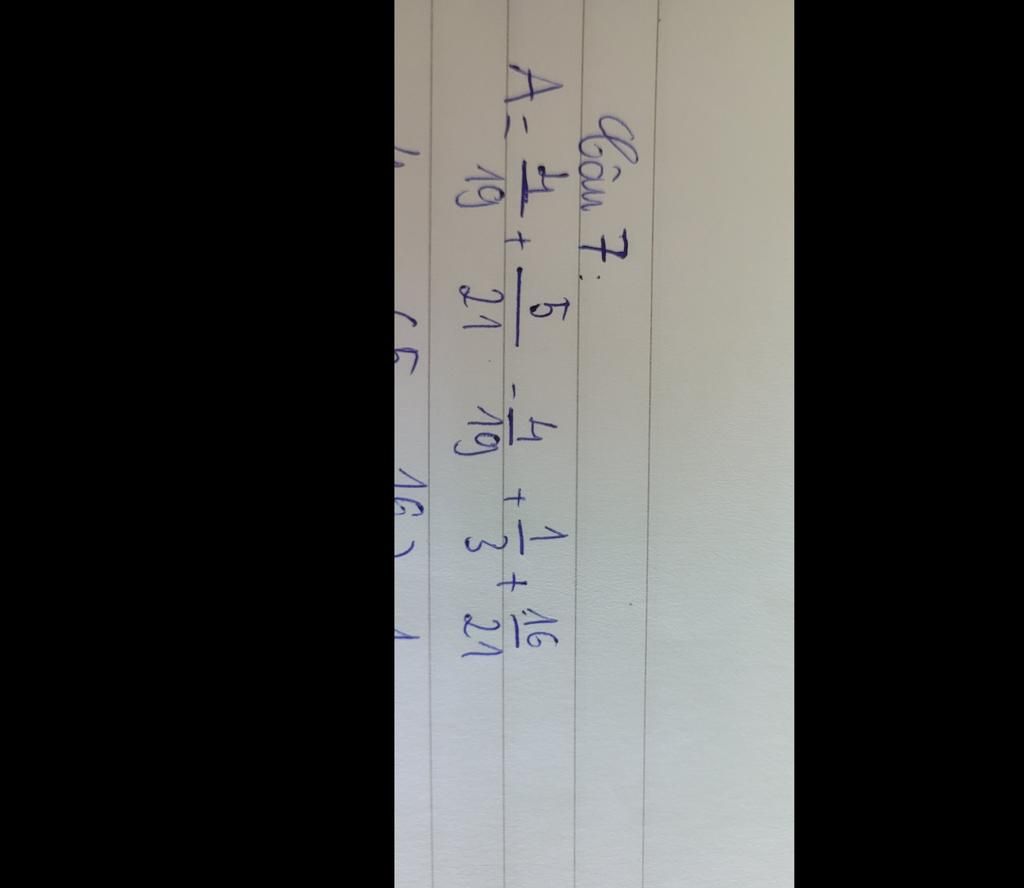 Câu 7:
A = 4/19 + 5/21 - 4/19 + 1/3 + 16/21